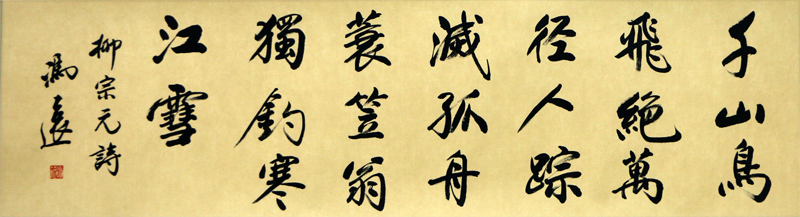 千山鳥
飛絶萬
徑人踪
滅孤舟
蓑笠翁
獨釣寒
江雪
柳宗元詩
馮遠